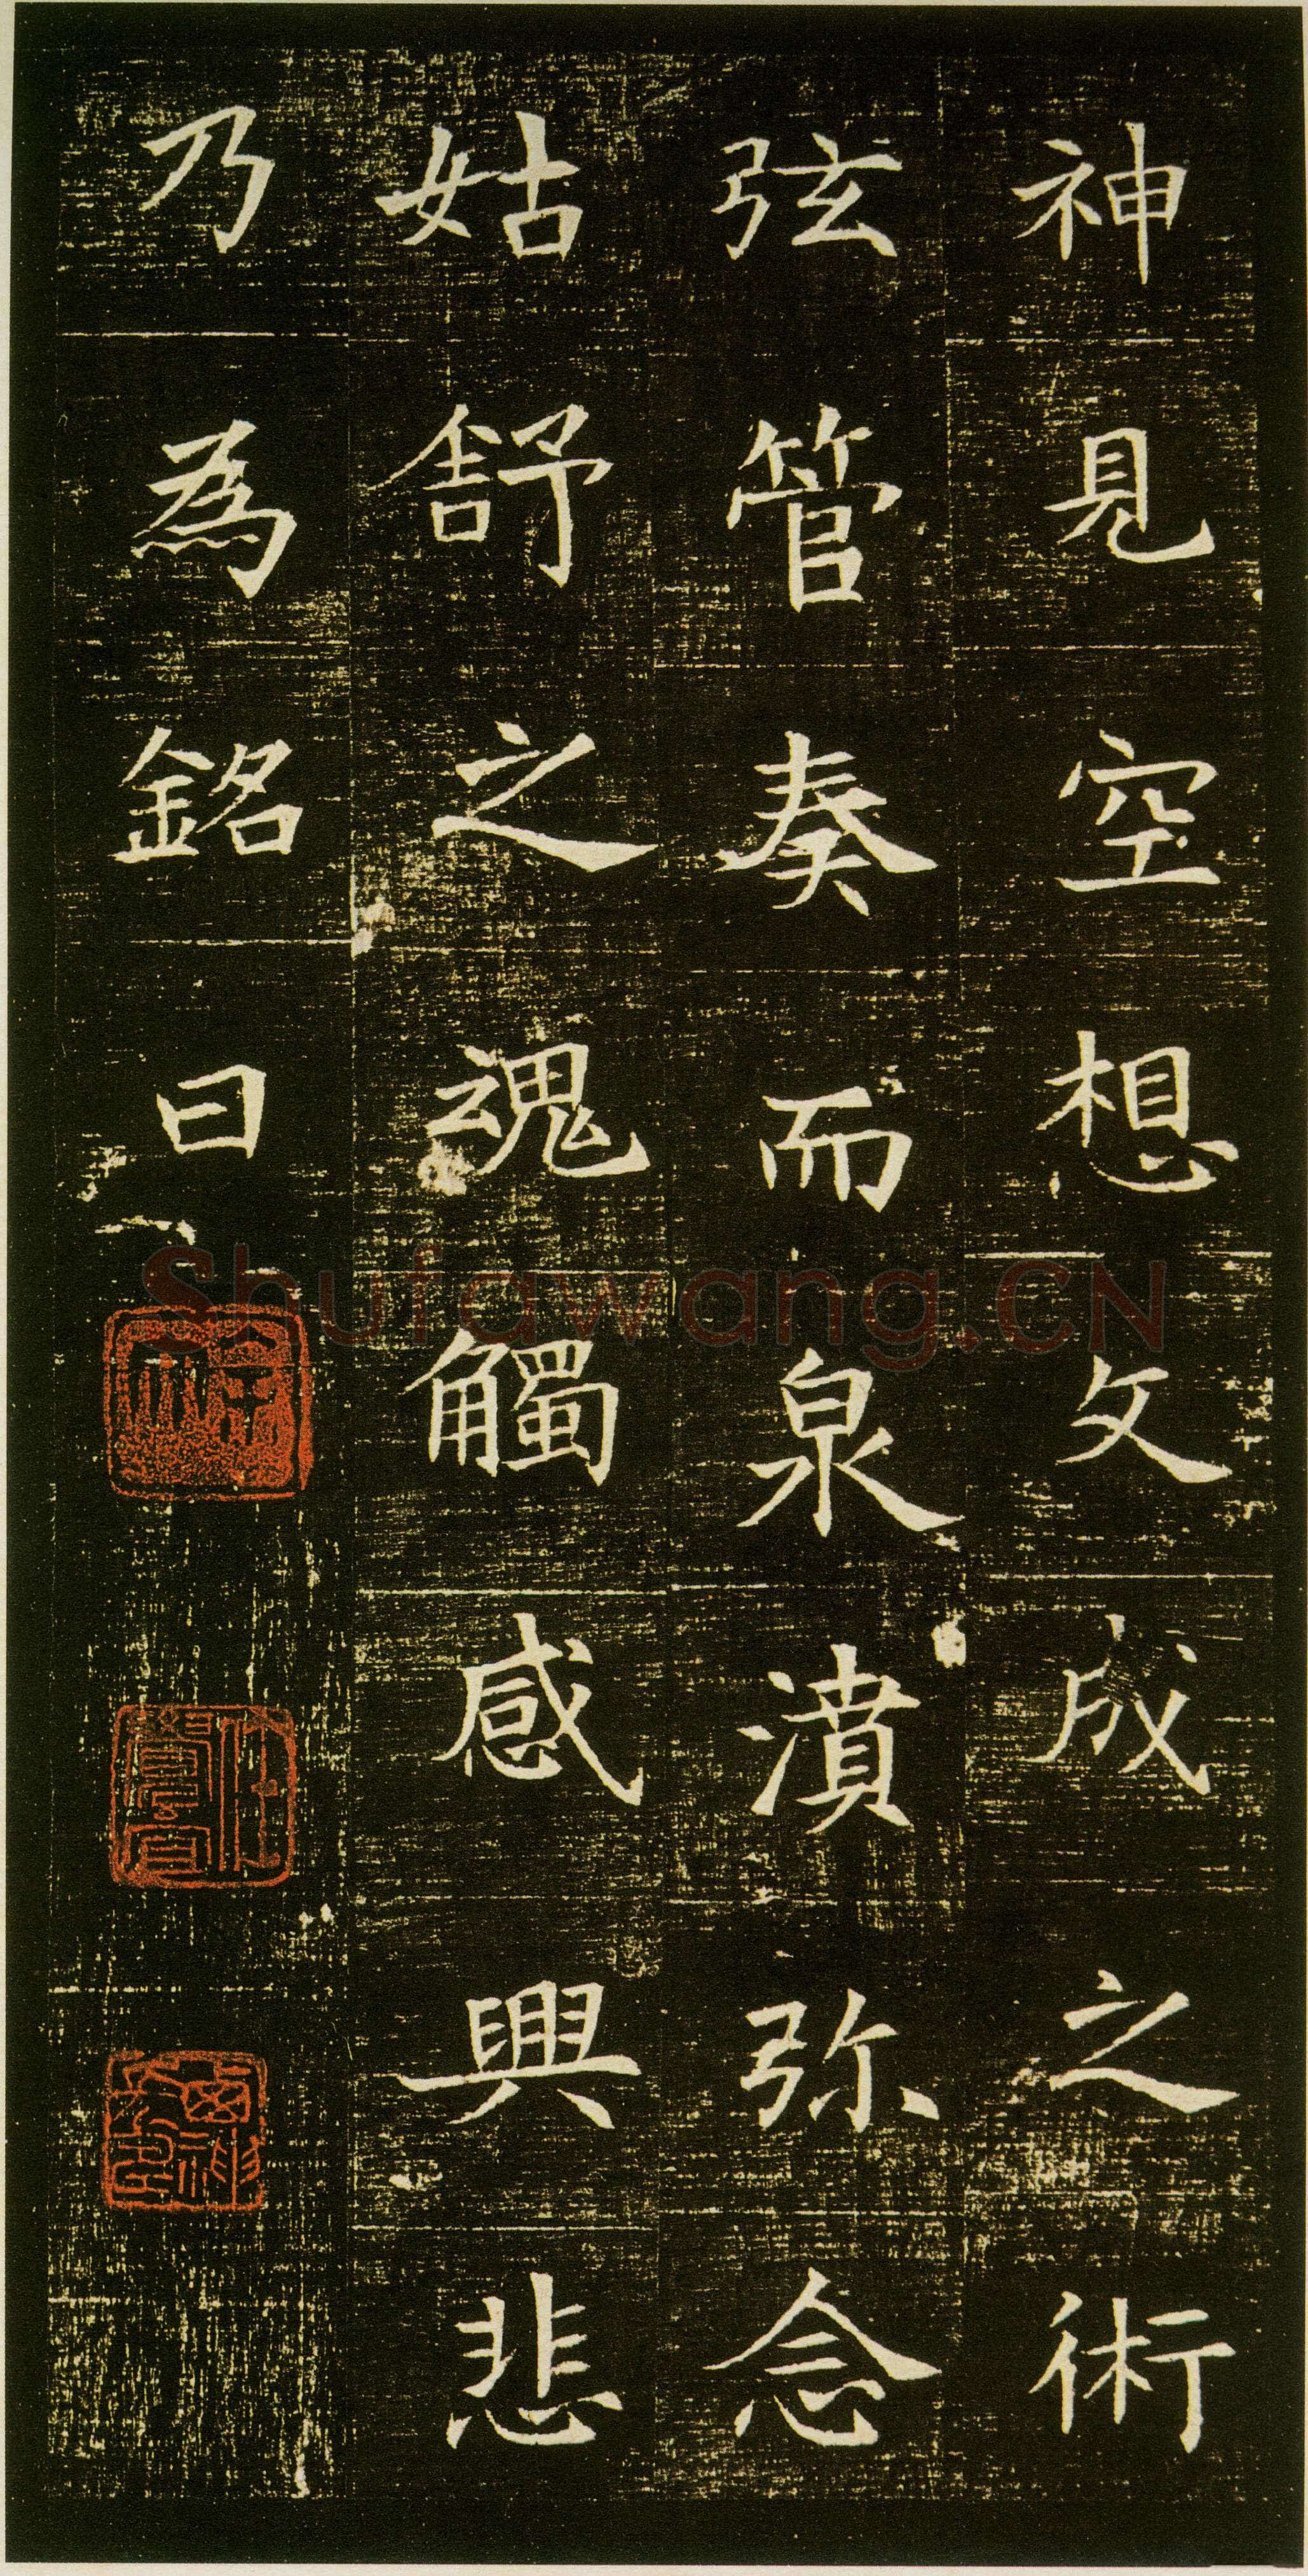 神見空想文成之術
弦管奏而泉濆弥念
姑舒之魂觸感興悲
乃為銘曰
Shufawang.CN